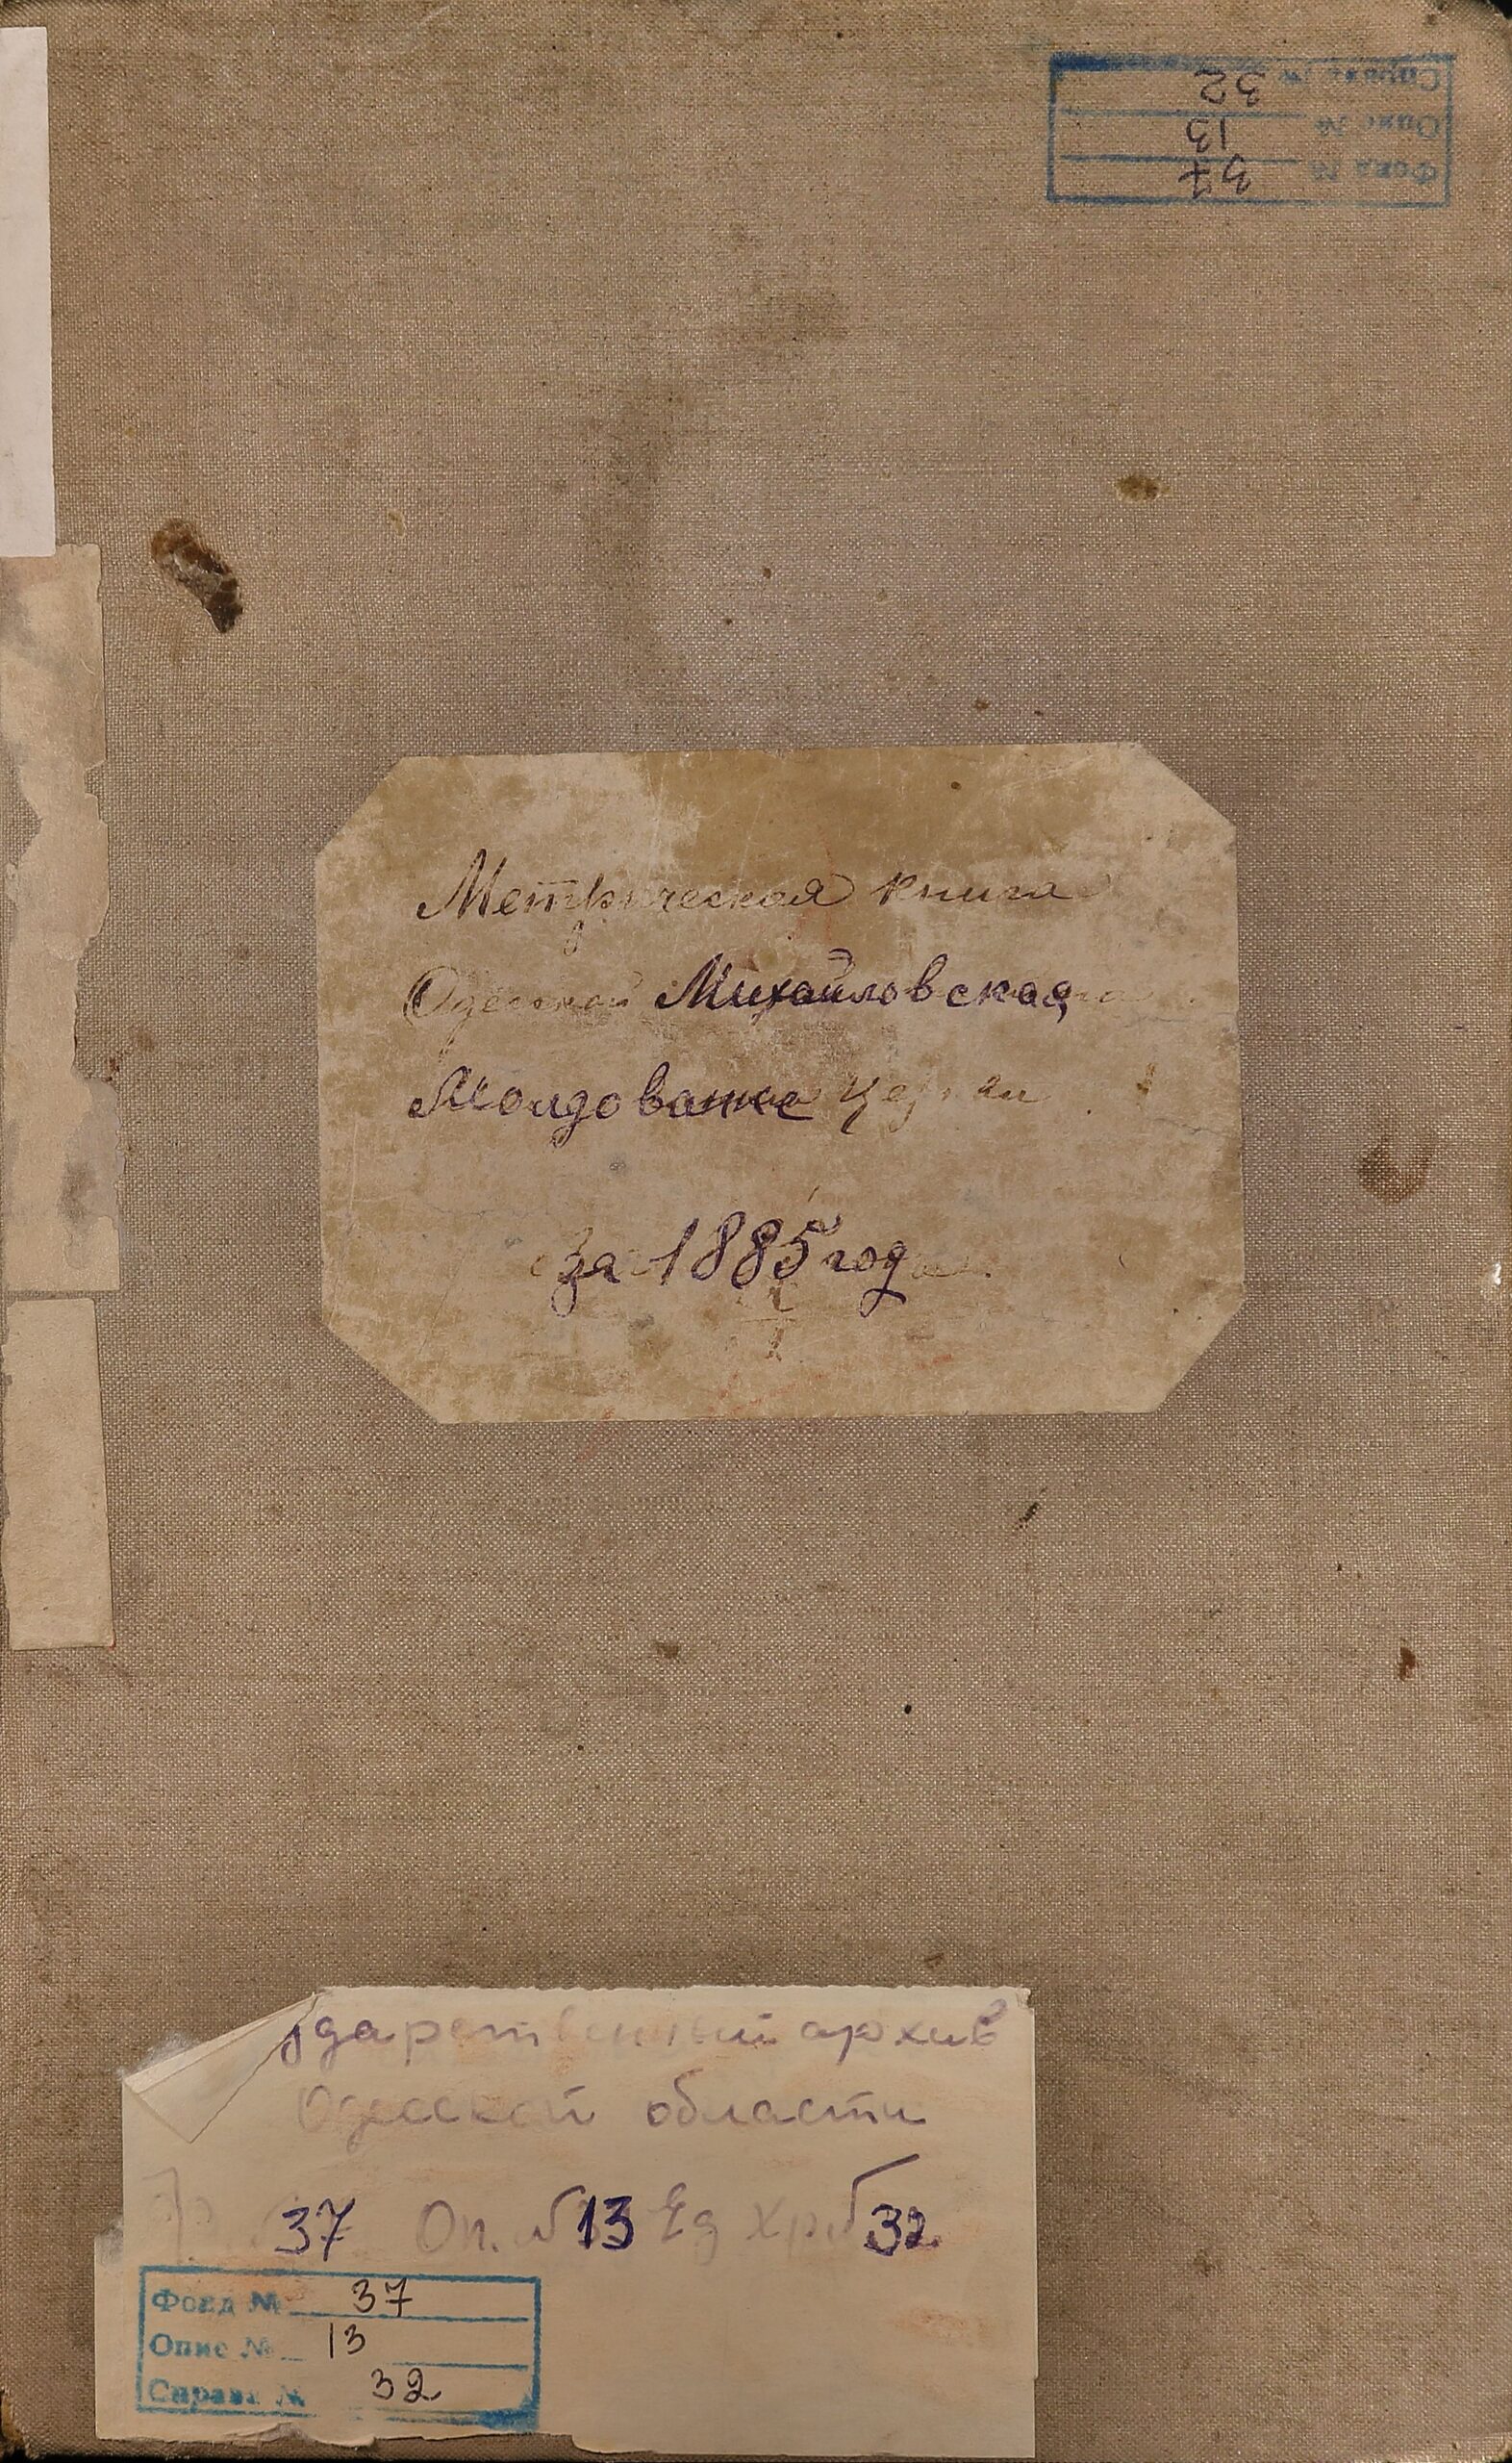 Справа № 32
Опис № 13
Фонд № 37
Метрическая книга
Одесской Михайловская
Молдованке церкви
за 1885 год
ударственный архив
Одесской области
37 Оп. № 13 Ед хр № 32
Фонд № 37
Опис № 13
Справа № 32